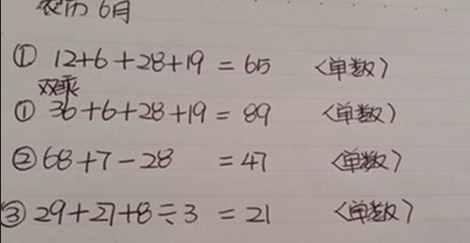 农历 6月
① 12+6+28+19 = 65 <单数>
双乘
① 36+6+28+19 = 89 <单数>
② 68+7-28 = 47 <单数>
③ 29+27+8÷3 = 21 <单数>